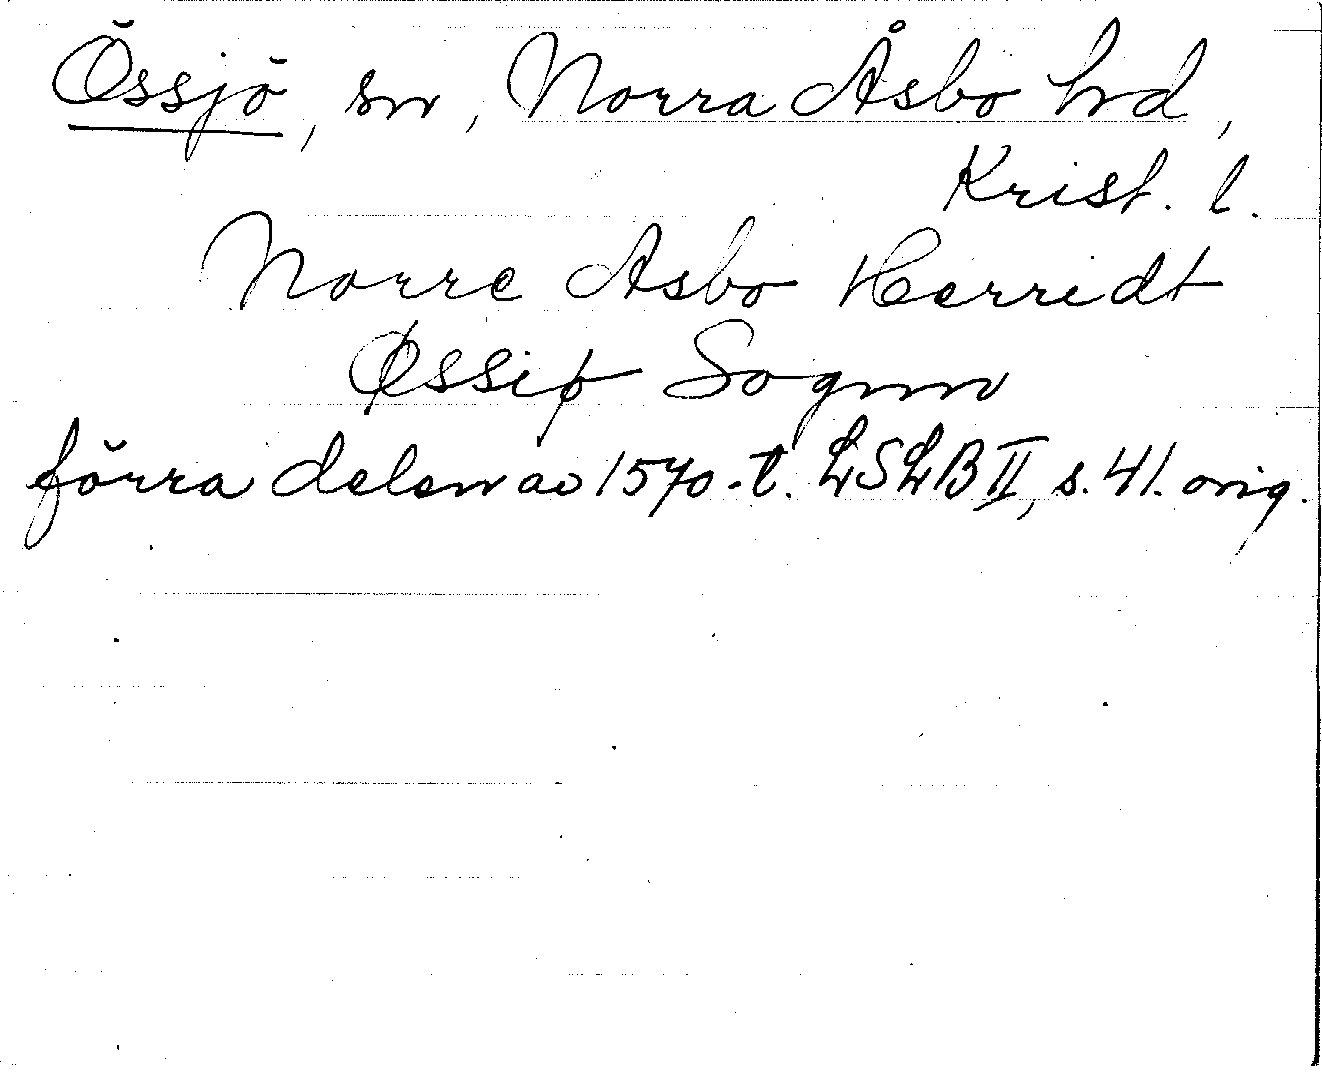 Össjö, sn, Norra Åsbo hrd,
Krist. l.
Norre Asbo Herridt
Øssiø Sognn
förra delen av 1570-t. LSLB II, s. 41. orig.